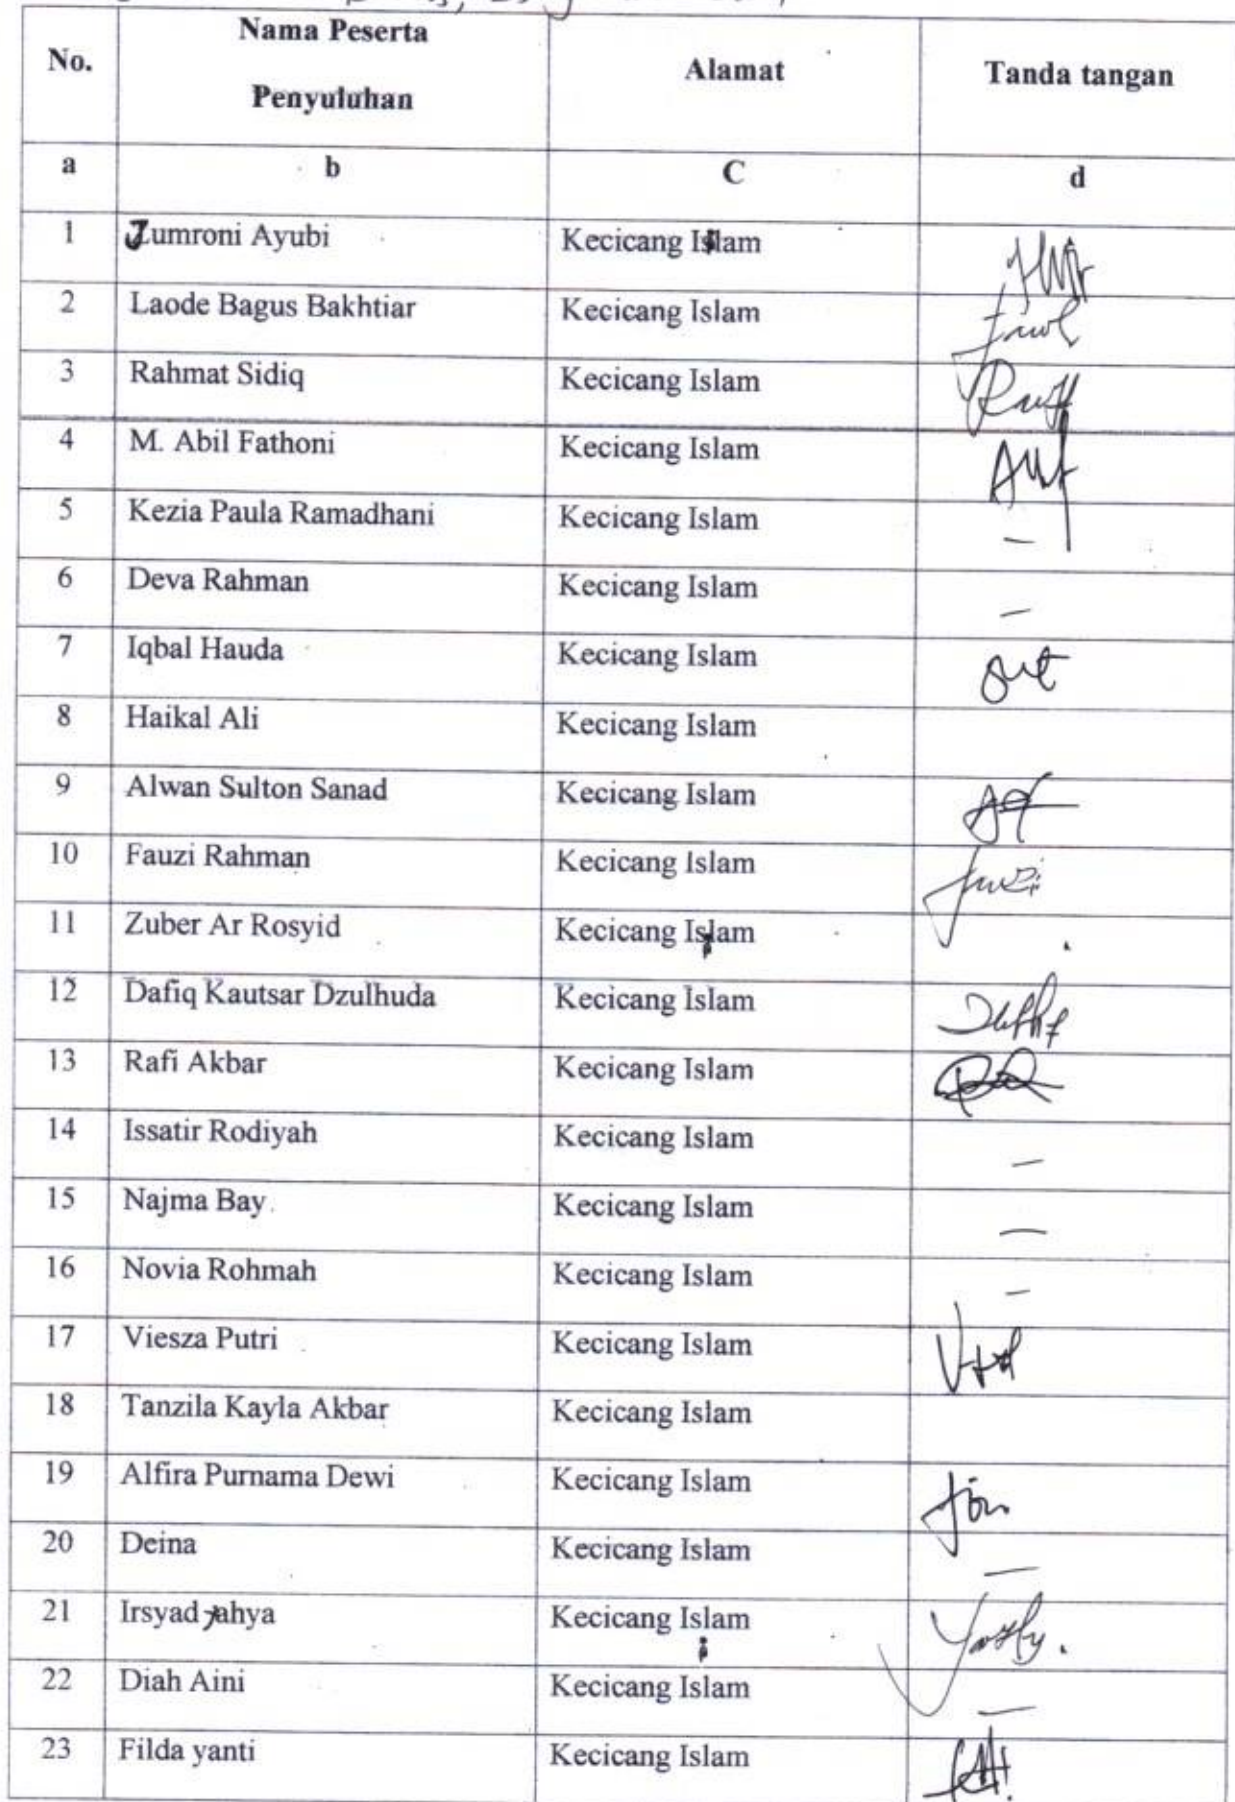 No. Nama Peserta Penyuluhan Alamat Tanda tangan
a b C d
1 Jumroni Ayubi Kecicang Islam
2 Laode Bagus Bakhtiar Kecicang Islam
3 Rahmat Sidiq Kecicang Islam
4 M. Abil Fathoni Kecicang Islam
5 Kezia Paula Ramadhani Kecicang Islam –
6 Deva Rahman Kecicang Islam –
7 Iqbal Hauda Kecicang Islam
8 Haikal Ali Kecicang Islam
9 Alwan Sulton Sanad Kecicang Islam
10 Fauzi Rahman Kecicang Islam
11 Zuber Ar Rosyid Kecicang Islam
12 Dafiq Kautsar Dzulhuda Kecicang Islam
13 Rafi Akbar Kecicang Islam
14 Issatir Rodiyah Kecicang Islam –
15 Najma Bay Kecicang Islam –
16 Novia Rohmah Kecicang Islam –
17 Viesza Putri Kecicang Islam
18 Tanzila Kayla Akbar Kecicang Islam
19 Alfira Purnama Dewi Kecicang Islam
20 Deina Kecicang Islam –
21 Irsyad yahya Kecicang Islam
22 Diah Aini Kecicang Islam –
23 Filda yanti Kecicang Islam